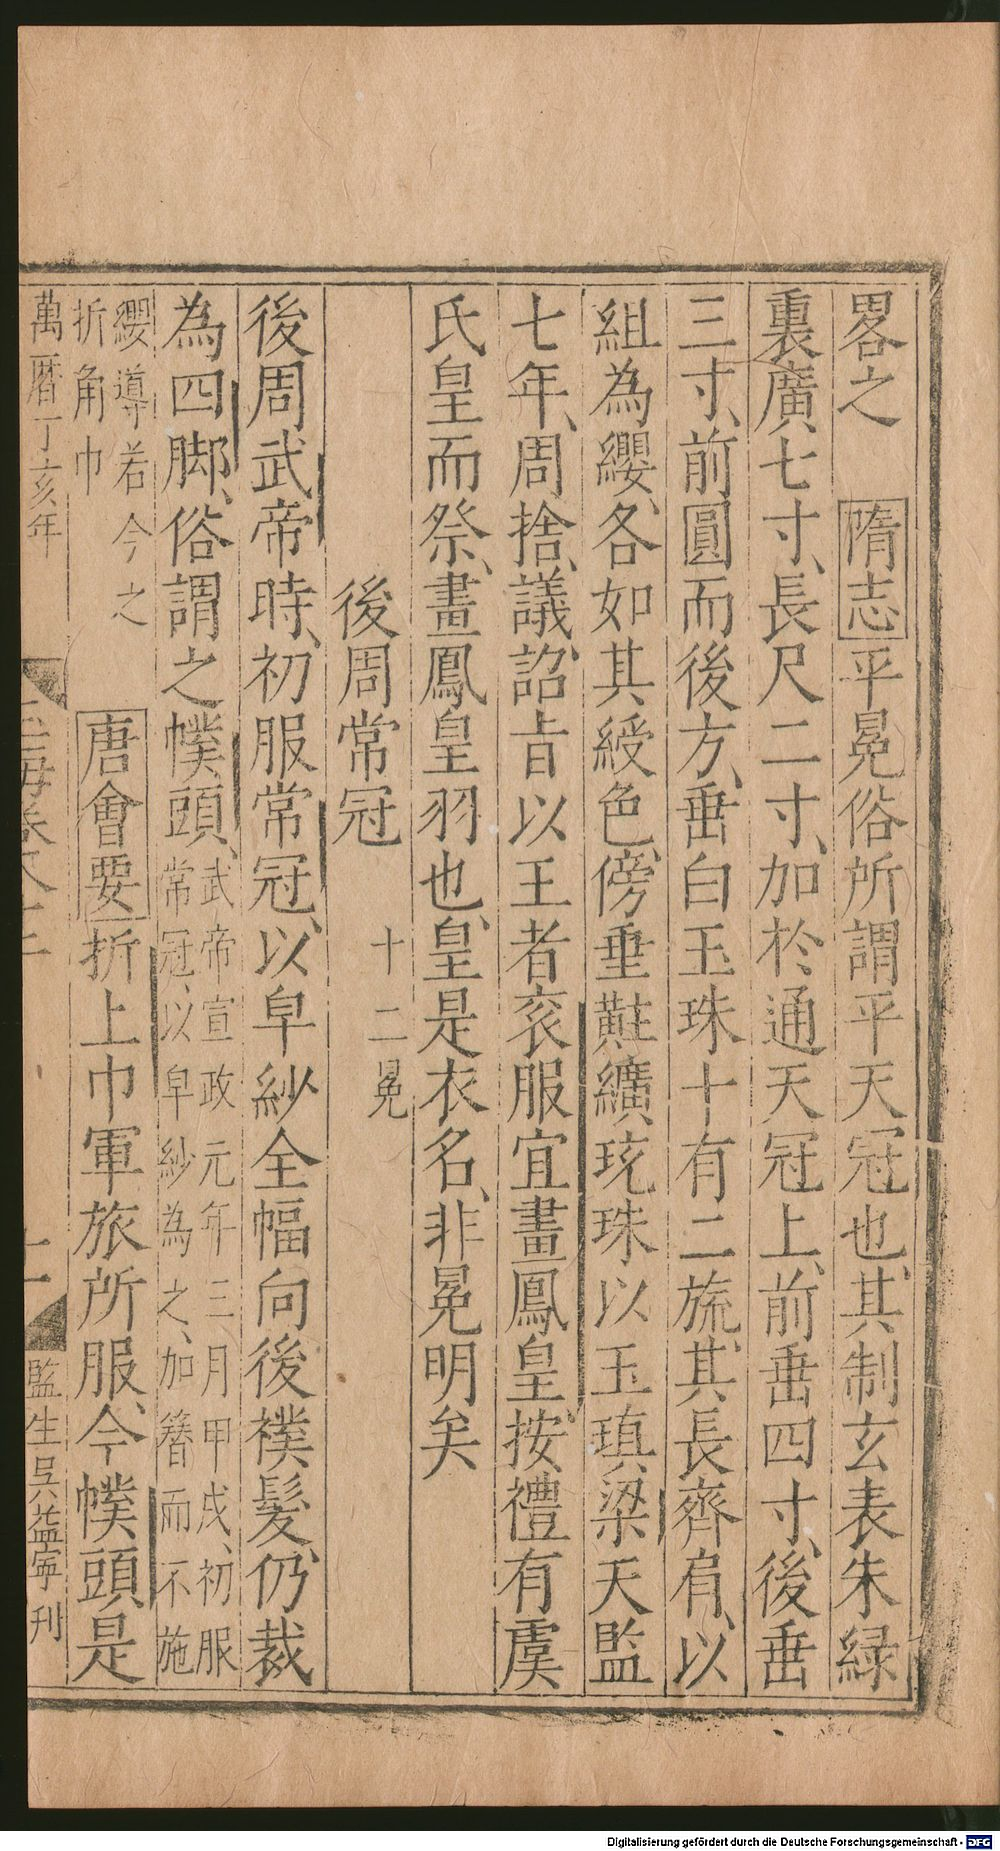 畧之　隋志平冕俗所謂平天冠也、其制玄表朱緑
裏廣七寸、長尺二寸、加於通天冠上、前垂四寸、後垂
三寸、前圓而後方、垂白玉珠十有二旒、其長齊肩、以
組為纓、各如其綬色、傍垂黈纊珫珠以玉瑱、梁天監
七年、周捨、議、詔㫖以王者衮服宜畫鳳皇、按禮有虞
氏皇而祭、畫鳳皇羽也、皇是衣名、非冕明矣
後周常冠　十二冕
後周武帝時、初服常冠、以皁紗全幅向後襆髮、仍裁
為四脚、俗謂之幞頭、武帝宣政元年三月甲戌、初服
常冠、以皁紗為之、加簪而不施
纓導若今之
折角巾
唐會要折上巾軍旅所服、今幞頭是
萬曆丁亥年
玉海卷八十二
十一
監生吴益寧刊
Digitalisierung gefördert durch die Deutsche Forschungsgemeinschaft - DFG